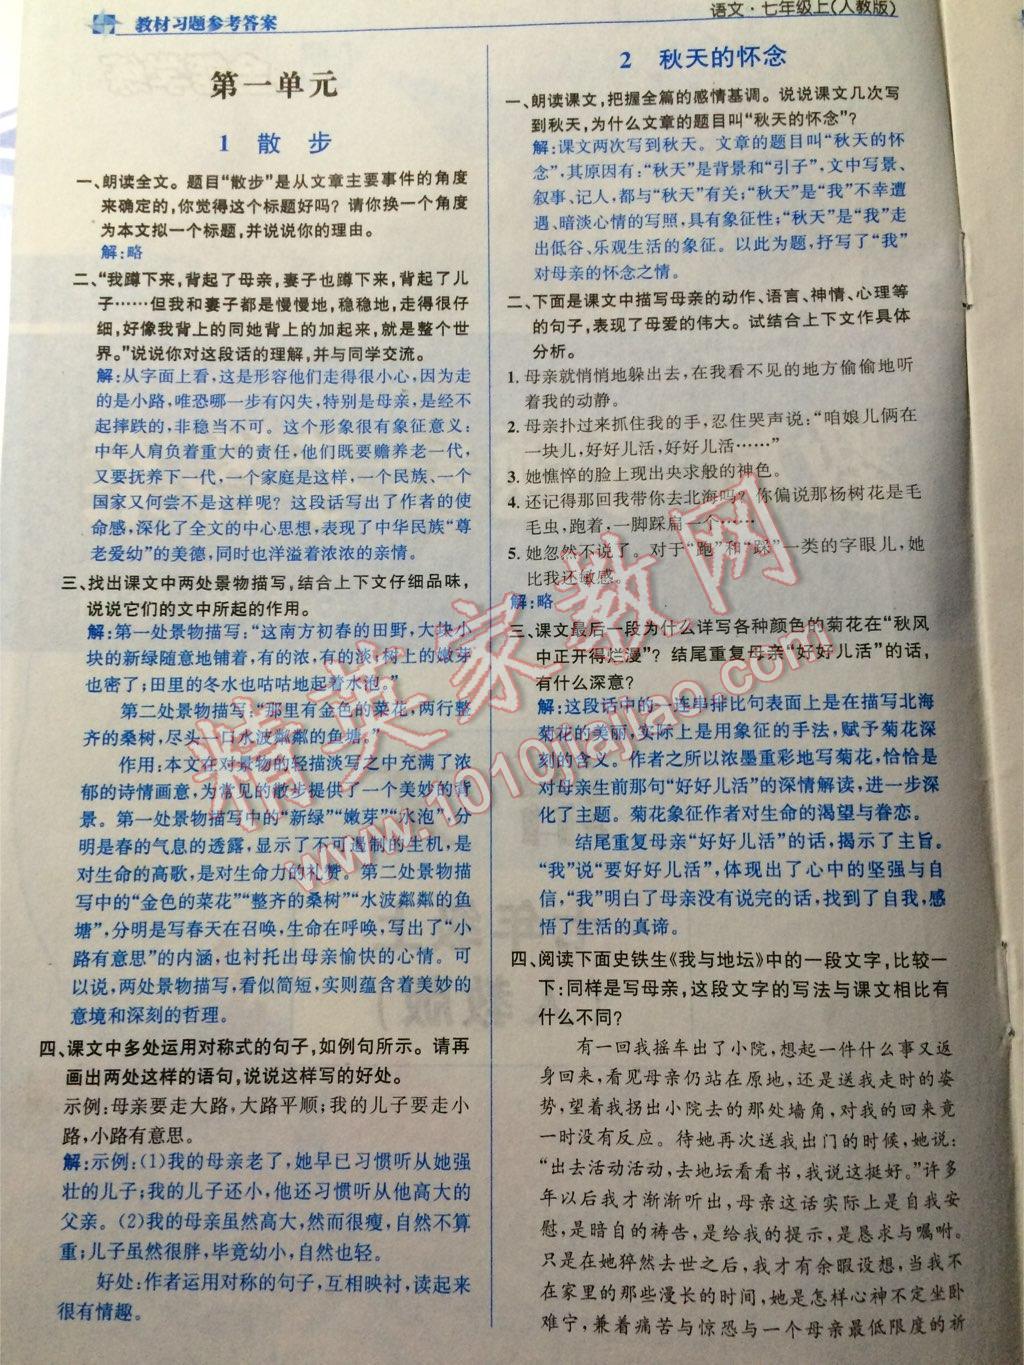 教材习题参考答案
语文·七年级上(人教版)
第一单元
1 散步
一、朗读全文。题目“散步”是从文章主要事件的角度
来确定的,你觉得这个标题好吗? 请你换一个角度
为本文拟一个标题,并说说你的理由。
解:略
二、“我蹲下来,背起了母亲,妻子也蹲下来,背起了儿
子……但我和妻子都是慢慢地,稳稳地,走得很仔
细,好像我背上的同她背上的加起来,就是整个世
界。”说说你对这段话的理解,并与同学交流。
解:从字面上看,这是形容他们走得很小心,因为走
的是小路,唯恐哪一步有闪失,特别是母亲,是经不
起摔跌的,非稳当不可。这个形象很有象征意义:
中年人肩负着重大的责任,他们既要赡养老一代,
又要抚养下一代,一个家庭是这样,一个民族、一个
国家又何尝不是这样呢? 这段话写出了作者的使
命感,深化了全文的中心思想,表现了中华民族“尊
老爱幼”的美德,同时也洋溢着浓浓的亲情。
三、找出课文中两处景物描写,结合上下文仔细品味,
说说它们的文中所起的作用。
解:第一处景物描写:“这南方初春的田野,大块小
块的新绿随意地铺着,有的浓,有的淡;树上的嫩芽
也密了;田里的冬水也咕咕地起着水泡。”
第二处景物描写:“那里有金色的菜花,两行整
齐的桑树,尽头一口水波粼粼的鱼塘。”
作用:本文在对景物的轻描淡写之中充满了浓
郁的诗情画意,为常见的散步提供了一个美妙的背
景。第一处景物描写中的“新绿”“嫩芽”“水泡”,分
明是春的气息的透露,显示了不可遏制的生机,是
对生命的高歌,是对生命力的礼赞。第二处景物描
写中的“金色的菜花”“整齐的桑树”“水波粼粼的鱼
塘”,分明是写春天在召唤,生命在呼唤,写出了“小
路有意思”的内涵,也衬托出母亲愉快的心情。可
以说,两处景物描写,看似简短,实则蕴含着美妙的
意境和深刻的哲理。
四、课文中多处运用对称式的句子,如例句所示。请再
画出两处这样的语句,说说这样写的好处。
示例:母亲要走大路,大路平顺;我的儿子要走小
路,小路有意思。
解:示例:(1)我的母亲老了,她早已习惯听从她强
壮的儿子;我的儿子还小,他还习惯听从他高大的
父亲。(2)我的母亲虽然高大,然而很瘦,自然不算
重;儿子虽然很胖,毕竟幼小,自然也轻。
好处:作者运用对称的句子,互相映衬,读起来
很有情趣。
2 秋天的怀念
一、朗读课文,把握全篇的感情基调。说说课文几次写
到秋天,为什么文章的题目叫“秋天的怀念”?
解:课文两次写到秋天。文章的题目叫“秋天的怀
念”,其原因有:“秋天”是背景和“引子”,文中写景、
叙事、记人,都与“秋天”有关;“秋天”是“我”不幸遭
遇、暗淡心情的写照,具有象征性;“秋天”是“我”走
出低谷、乐观生活的象征。以此为题,抒写了“我”
对母亲的怀念之情。
二、下面是课文中描写母亲的动作、语言、神情、心理等
的句子,表现了母爱的伟大。试结合上下文作具体
分析。
1. 母亲就悄悄地躲出去,在我看不见的地方偷偷地听
着我的动静。
2. 母亲扑过来抓住我的手,忍住哭声说:“咱娘儿俩在
一块儿,好好儿活,好好儿活……”
3. 她憔悴的脸上现出央求般的神色。
4. 还记得那回我带你去北海吗? 你偏说那杨树花是毛
毛虫,跑着,一脚踩扁一个……
5. 她忽然不说了。对于“跑”和“踩”一类的字眼儿,她
比我还敏感。
解:略
三、课文最后一段为什么详写各种颜色的菊花在“秋风
中正开得烂漫”? 结尾重复母亲“好好儿活”的话,
有什么深意?
解:这段话中的一连串排比句表面上是在描写北海
菊花的美丽,实际上是用象征的手法,赋予菊花深
刻的含义。作者之所以浓墨重彩地写菊花,恰恰是
对母亲生前那句“好好儿活”的深情解读,进一步深
化了主题。菊花象征作者对生命的渴望与眷恋。
结尾重复母亲“好好儿活”的话,揭示了主旨。
“我”说“要好好儿活”,体现出了心中的坚强与自
信,“我”明白了母亲没有说完的话,找到了自我,感
悟了生活的真谛。
四、阅读下面史铁生《我与地坛》中的一段文字,比较一
下:同样是写母亲,这段文字的写法与课文相比有
什么不同?
有一回我摇车出了小院,想起一件什么事又返
身回来,看见母亲仍站在原地,还是送我走时的姿
势,望着我拐出小院去的那处墙角,对我的回来竟
一时没有反应。待她再次送我出门的时候,她说:
“出去活动活动,去地坛看看书,我说这挺好。”许多
年以后我才渐渐听出,母亲这话实际上是自我安
慰,是暗自的祷告,是给我的提示,是恳求与嘱咐。
只是在她猝然去世之后,我才有余暇设想,当我不
在家里的那些漫长的时间,她是怎样心神不定坐卧
难宁,兼着痛苦与惊恐与一个母亲最低限度的祈
精英家教网
www.1010jiajiao.com